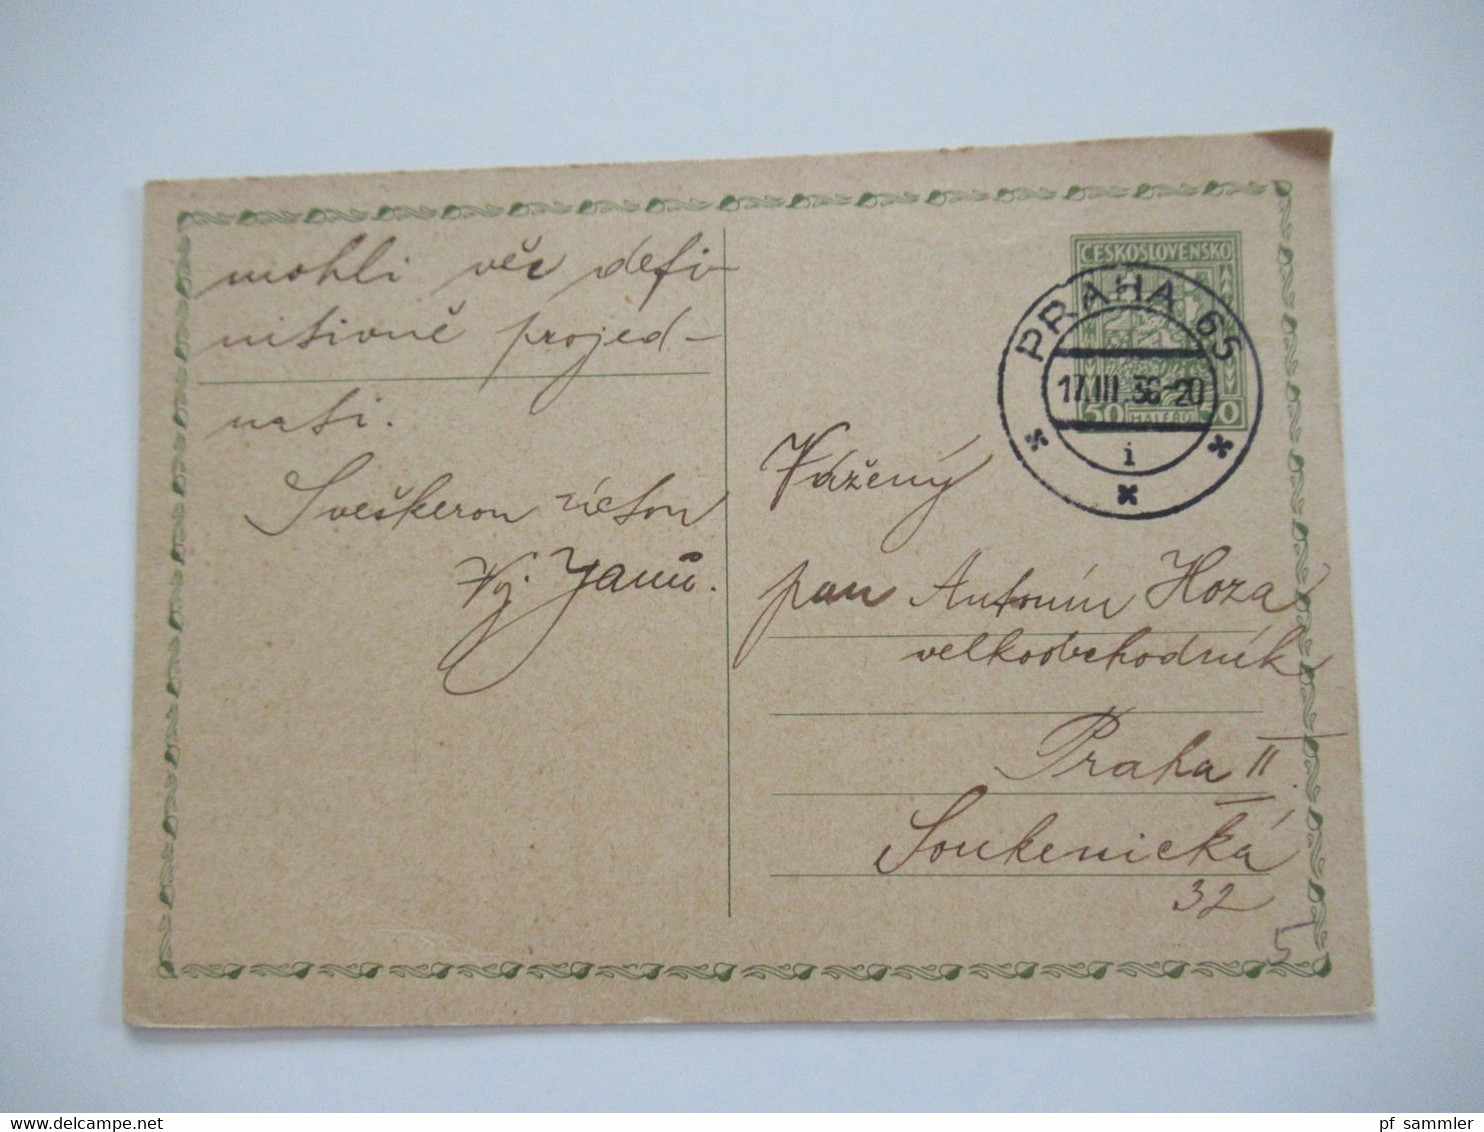 mohli věc defi-
nitivně projed-
nati.
Veškerou úctou
Vj. Janů.
ČESKOSLOVENSKO
50 HALÉŘŮ 50
PRAHA 65
17.III.36-20
i
Vážený
pan Antonín Hoza
velkoobchodník
Praha II
Soukenická
32
5
pf sammler